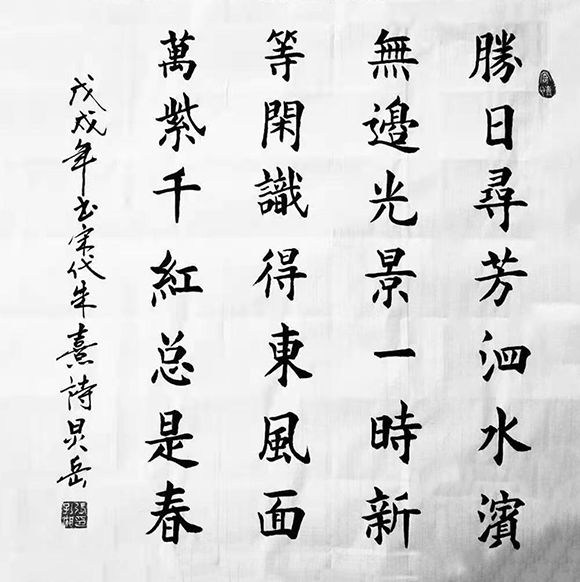 勝日尋芳泗水濱
無邊光景一時新
等閑識得東風面
萬紫千紅总是春
戊戌年书宋代朱熹詩昊岳